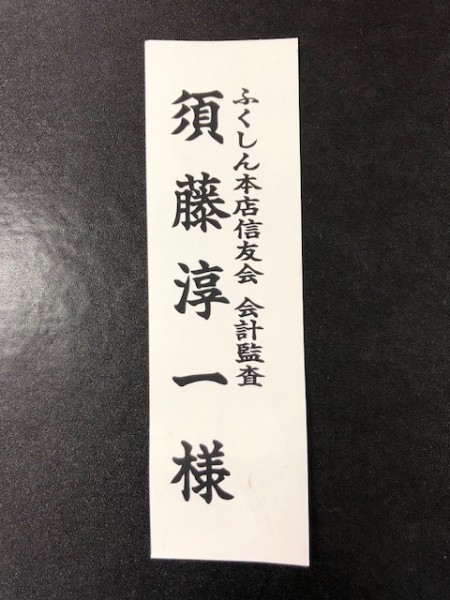 ふくしん本店信友会 会計監査
須藤淳一様